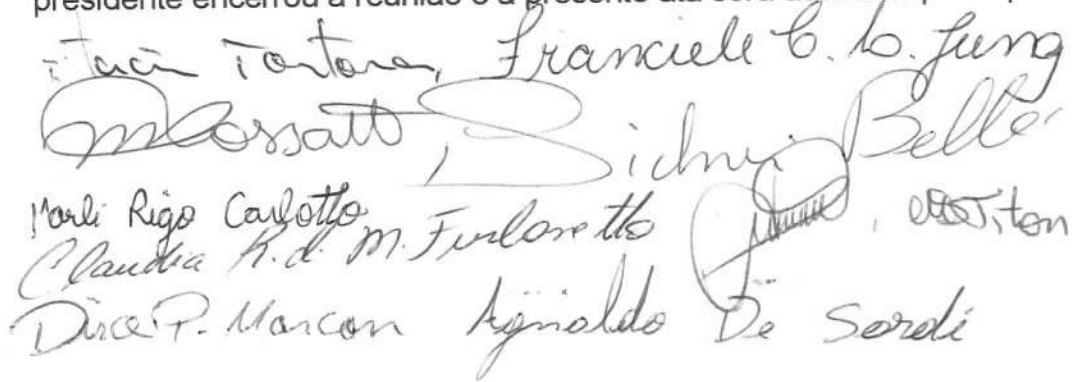 presidente encerrou a reunião e a presente ata será
Tortora, Franciele C. C. Jung
Mossatto Sidnei Bellé
Marli Rigo Carlotto
Claudia R. d. M. Furlanetto , Titon
Dirce P. Marcon Agnaldo De Sordi